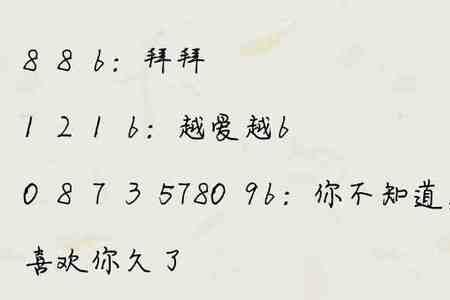 8 8 6：拜拜
1 2 1 6：越爱越6
0 8 7 3 5780 96：你不知道，
喜欢你久了